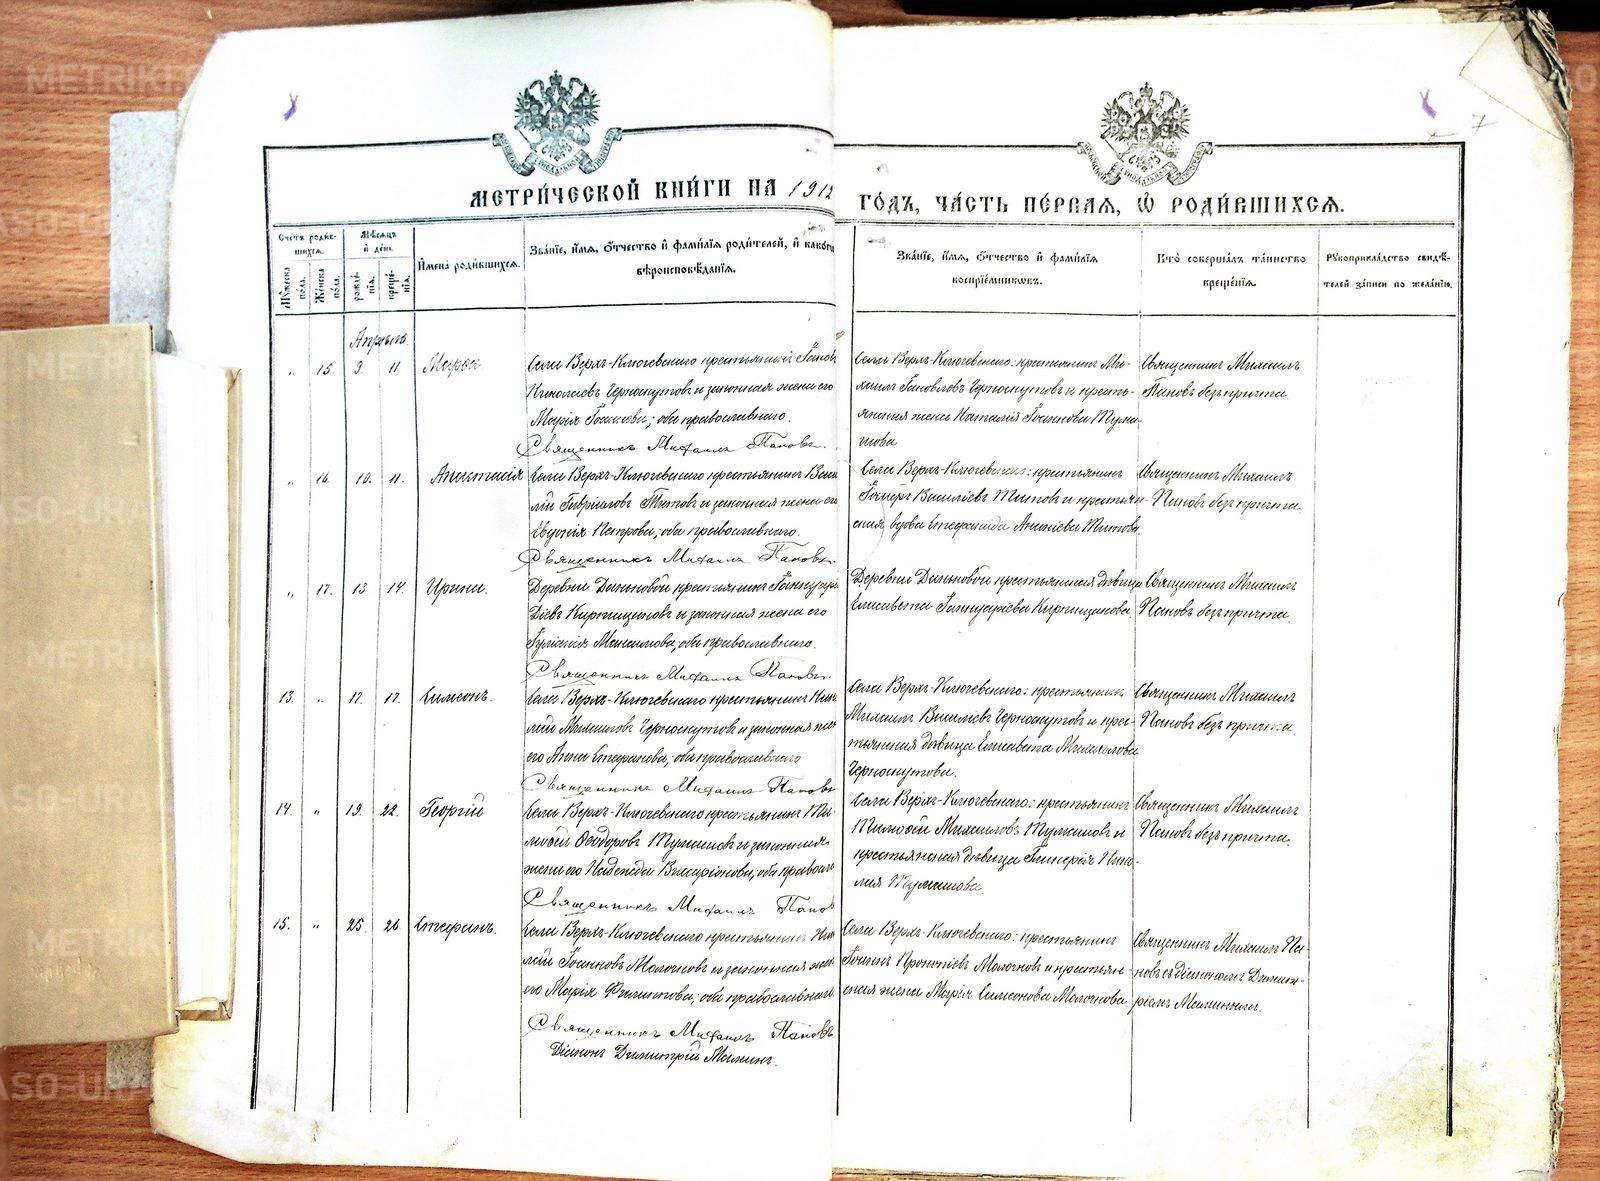 7
МЕТРИ́ЧЕСКОЙ КНИ́ГИ НА 1912
ГО́ДЪ, ЧА́СТЬ ПЕ́РВАЯ, Ѡ РОДИ́ВШИХСЯ.
Сче́тъ роди́в-
шихся.
Му́жеска по́ла.
Же́нска по́ла.
Мѣ́сяцъ и де́нь.
рожде́-
нія.
креще́-
нія.
И́мена роди́вшихся.
Зва́ніе, и́мя, о́тчество и фами́лія роди́телей, и како́го
вѣроисповѣ́данія.
Зва́ніе, и́мя, о́тчество и фами́лія
воспріе́мниковъ.
Кто́ соверша́лъ та́инство
креще́нія.
Рукоприкла́дство свидѣ́-
телей за́писи по жела́нію.
Апрѣль.
„ 15. 9. 11. Марѳа
Села Верхъ-Ключевского крестьянинъ
Николаевъ Черноскутовъ и законная жена его
Марія; оба православнаго.
Священникъ Михаилъ Пановъ.
Села Верхъ-Ключевского: крестьянинъ Ми-
хаилъ Черноскутовъ и кресть-
янская жена Наталія Іоаннова Тума-
шова
Священникъ Михаилъ
Пановъ безъ причта.
„ 16. 10. 11. Анастасія
Села Верхъ-Ключевского крестьянинъ Васи
лій Гавріиловъ Титовъ и законная жена его
Евдокія Петрова; оба православнаго.
Священникъ Михаилъ Пановъ.
Села Верхъ-Ключевского: крестьянинъ
Василіевъ Титовъ и крестьян-
ская вдова Стефанида Титова.
Священникъ Михаилъ
Пановъ безъ причта.
„ 17. 13 14. Ирина.
Деревни крестьянинъ
Діевъ Кирпищиковъ и законная жена его
Іуліанія Максимова, оба православнаго.
Священникъ Михаилъ Пановъ.
Деревни крестьянская дѣвица
Елисавета Кирпищикова.
Священникъ Михаилъ
Пановъ безъ причта.
13. „ 17. 17. Симеонъ.
Села Верхъ-Ключевского крестьянинъ Нико
лай Михаиловъ Черноскутовъ и законная жена
его Анна Стефанова; оба православнаго
Священникъ Михаилъ Пановъ
Села Верхъ-Ключевского: крестьянинъ
Михаилъ Василіевъ Черноскутовъ и крес-
тьянская дѣвица Елисавета Михаилова
Черноскутова.
Священникъ Михаилъ
Пановъ безъ причта.
14. „ 19. 22. Георгій
Села Верхъ-Ключевского крестьянинъ Ти-
моѳей Ѳеодоровъ Тумашовъ и законная
жена его Надежда Виссаріонова, оба правосл
Священникъ Михаилъ Панов
Села Верхъ-Ключевского: крестьянинъ
Тимоѳей Михаиловъ Тумашовъ и
крестьянская дѣвица Гликерія Нико-
лая Тумашова.
Священникъ Михаилъ
Пановъ безъ причта.
15. „ 25. 26. Стефанъ.
Села Верхъ-Ключевского крестьянинъ Нико
лай Іоанновъ Молочковъ и законная жена
его Марія Филиппова; оба православнаго
Священникъ Михаилъ Пановъ
Діаконъ Димитрій Маминъ.
Села Верхъ-Ключевского: крестьянинъ
Іоаннъ Прокопіевъ Молочковъ и крестьян-
ская жена Марія Симеонова Молочкова.
Священникъ Михаилъ Па-
новъ съ діакономъ Димит-
ріемъ Маминымъ.